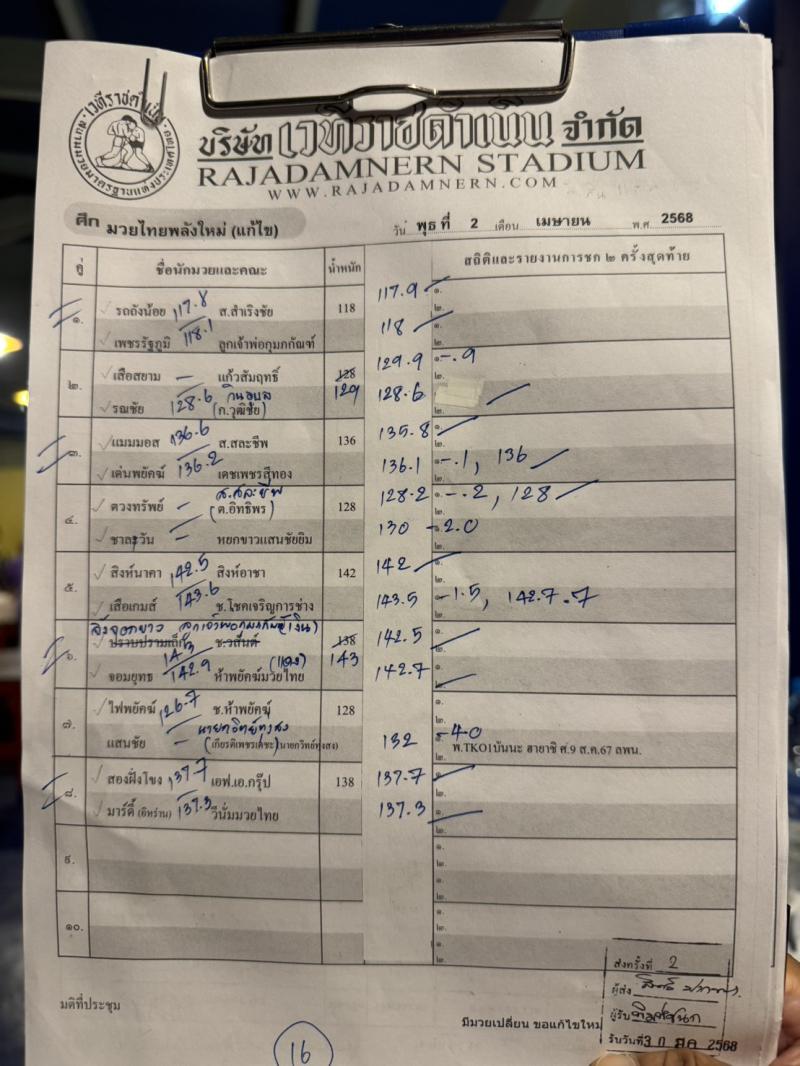 เวทีราชดำเนิน
สนามมวยมาตรฐานแห่งประเทศไทย
บริษัท เวทีราชดำเนิน จำกัด
RAJADAMNERN STADIUM
WWW.RAJADAMNERN.COM
ศึก มวยไทยพลังใหม่ (แก้ไข) วัน พุธ ที่ 2 เดือน เมษายน พ.ศ 2568
คู่ ชื่อนักมวยและคณะ น้ำหนัก สถิติและรายงานการชก ๒ ครั้งสุดท้าย
๑. รถถังน้อย 117.8 ส.สำเริงชัย 118 117.9 ๑.
๒.
เพชรรัฐภูมิ 118.1 ลูกเจ้าพ่อกุมภกัณฑ์ 118 ๑.
๒.
๒. เสือสยาม – แก้วสัมฤทธิ์ 128 129 129.9 ๑. -.9
๒.
รณชัย 128.6 กินอุบล (ก.วุฒิชัย) 128.6
๒.
๓. แมมมอส 136.6 ส.สละชีพ 136 135.8 ๑.
๒.
เด่นพยัคฆ์ 136.2 เดชเพชรสีทอง 136.1 ๑. -.1, 136
๒.
๔. ดวงทรัพย์ – ส.สละชีพ (ต.อิทธิพร) 128 128.2 ๑. -.2, 128
๒.
ชาละวัน – หยกขาวแสนชัยยิม 130 ๑. -2.0
๒.
๕. สิงห์นาคา 142.5 สิงห์อาชา 142 142 ๑.
๒.
เสือเกมส์ 143.6 ช.โชคเจริญการช่าง 143.5 ๑. -1.5, 142.7 -.7
๒.
ลูกเจ้าพ่อกุมภกัณฑ์ (เงิน)
๖. ปราบปรามเล็ก ช.วสันต์ 138 143 142.5 ๑.
๒.
จอมยุทธ 142.9 (แดง) ห้าพยัคฆ์มวยไทย 142.7 ๑.
๒.
๗. ไฟพยัคฆ์ 126.7 ช.ห้าพยัคฆ์ 128 ๑.
๒.
แสนชัย – นายกวิทย์ทุ่งสง (เกียรติเพชรเดชะ) นายกวิทย์ทุ่งสง) 132 ๑. -4.0
๒. พ.TKO1บันนะ ฮายาชิ ศ.9 ส.ค.67 ลพน.
๘. สองฝั่งโขง 137.7 เอฟ.เอ.กรุ๊ป 138 137.7 ๑.
๒.
มาร์ดี้ (อิหร่าน) 137.3 วีนั่มมวยไทย 137.3 ๑.
๒.
๙. ๑.
๒.
๑.
๒.
๑๐. ๑.
๒.
๑.
๒.
มติที่ประชุม
มีมวยเปลี่ยน ขอแก้ไขใหม่
ส่งครั้งที่ 2
ผู้ส่ง
ผู้รับ
รับวันที่ 2568
16